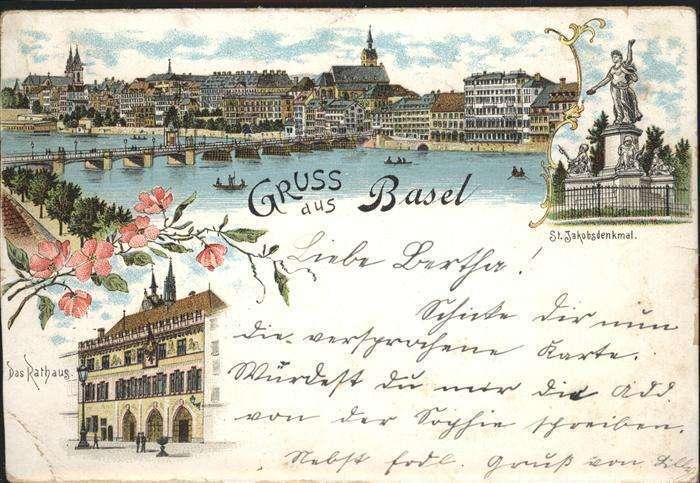 GRUSS
aus Basel
St. Jakobsdenkmal.
Das Rathaus
Liebe Bertha!
Schicke dir nun
die versprochene Karte.
Würdest du mir die Add.
von der Sophie schreiben.
Nebst frdl. Gruß von Lilly